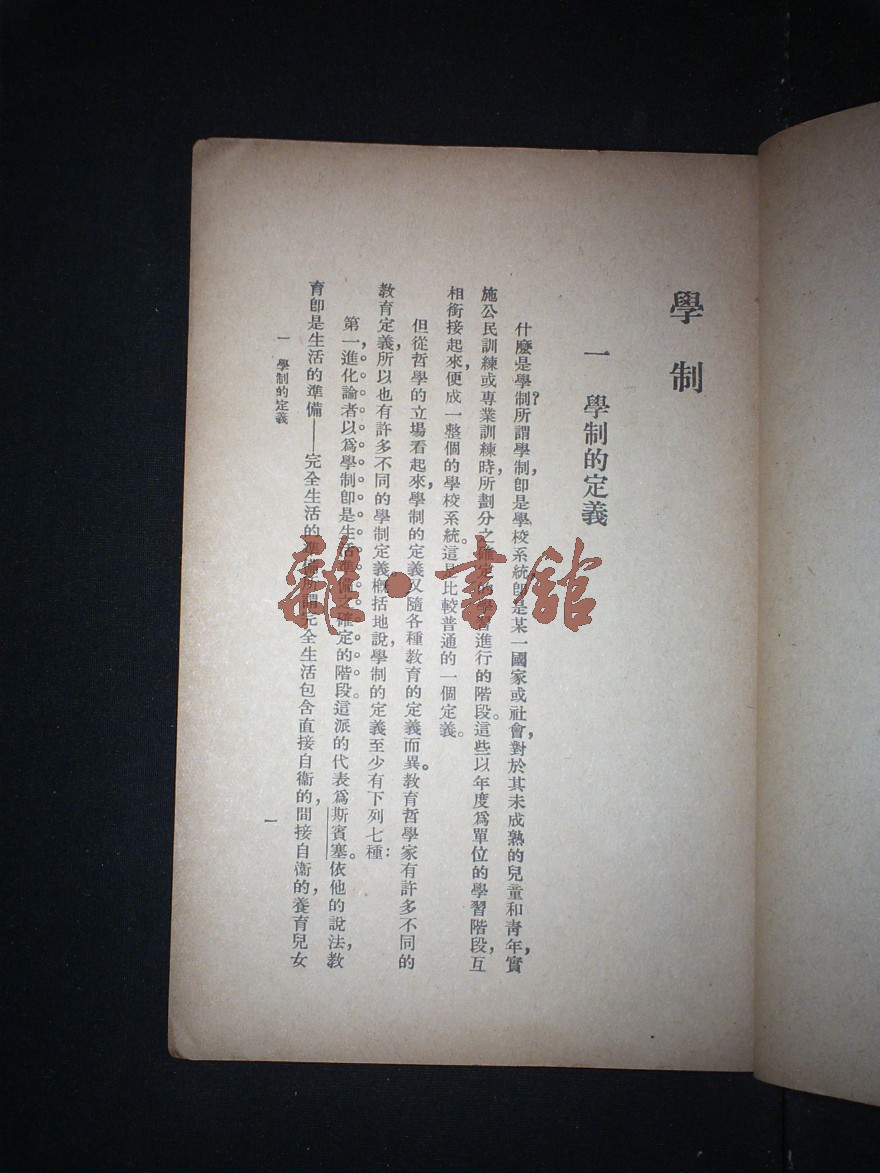 學制
一　學制的定義
什麼是學制？所謂學制，卽是學校系統，卽是某一國家或社會，對於其未成熟的兒童和青年，實
施公民訓練或專業訓練時，所劃分之確定的學習進行的階段。這些以年度爲單位的學習階段，互
相銜接起來，便成一整個的學校系統。這是比較普通的一個定義。
但從哲學的立場看起來，學制的定義又隨各種教育的定義而異。教育哲學家有許多不同的
教育定義，所以也有許多不同的學制定義。概括地說，學制的定義至少有下列七種：
第一，進化論者以爲學制卽是生活準備之確定的階段。這派的代表爲斯賓塞。依他的說法，教
育卽是生活的準備——完全生活的準備。所謂完全生活包含直接自衞的，間接自衞的，養育兒女
一　學制的定義
一
雜·書館